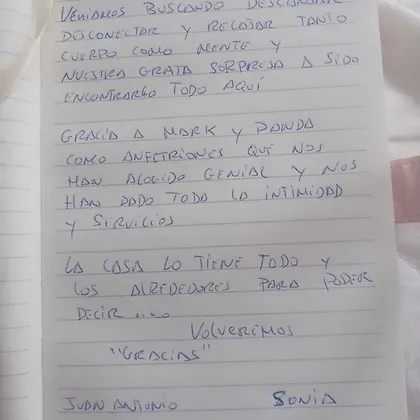 VENIAMOS BUSCANDO DESCANSAR
DESCONECTAR Y RELAJAR TANTO
CUERPO COMO MENTE Y
NUESTRA GRATA SORPRESA A SIDO
ENCONTRARLO TODO AQUÍ
GRACIA A MARK Y PANDA
COMO ANFITRIONES QUE NOS
HAN ACOGIDO GENIAL Y NOS
HAN DADO TODA LA INTIMIDAD
Y SERVICIOS
LA CASA LO TIENE TODO Y
LOS ALREDEDORES PARA PODER
DECIR ....
VOLVEREMOS
"GRACIAS"
JUAN ANTONIO SONIA